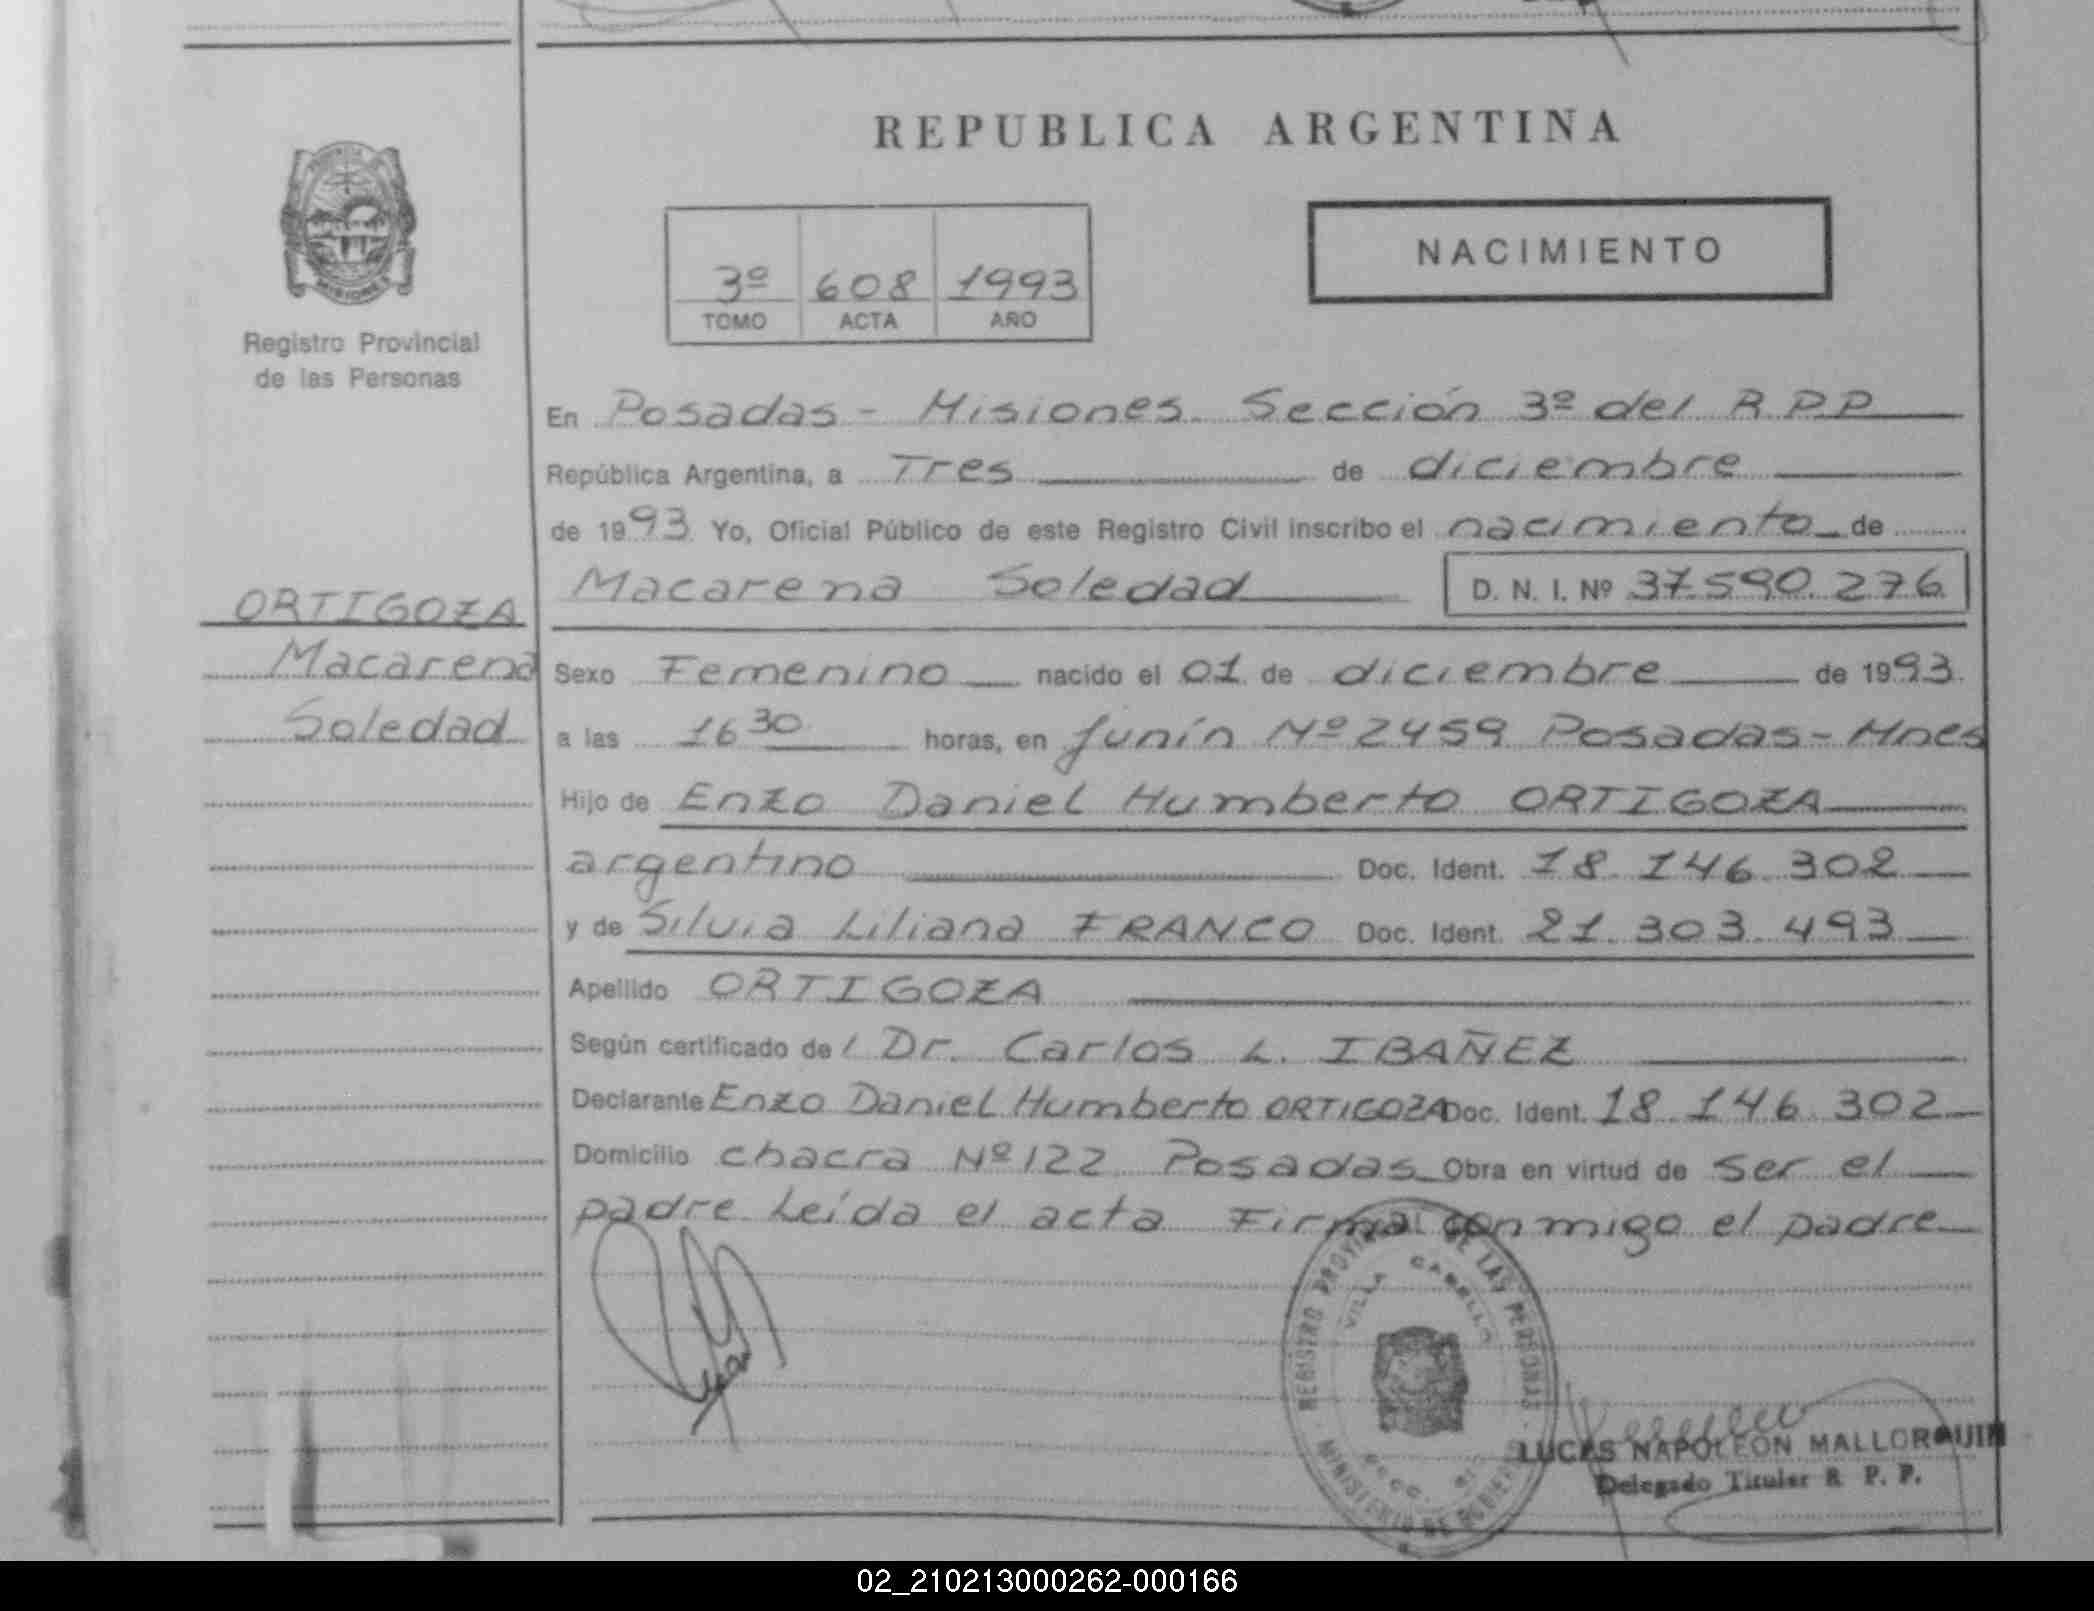 REPUBLICA ARGENTINA
PROVINCIA DE
MISIONES
Registro Provincial
de las Personas
NACIMIENTO
3º 608 1993
TOMO ACTA AÑO
En Posadas - Misiones Sección 3º del R P P
República Argentina, a Tres de diciembre
de 1993 Yo, Oficial Público de este Registro Civil inscribo el nacimiento de
Macarena Soledad D. N. I. Nº 37.590.276
ORTIGOZA
Macarena
Soledad
Sexo Femenino nacido el 01 de diciembre de 1993
a las 16 30 horas, en Junín Nº 2459 Posadas - Mnes
Hijo de Enzo Daniel Humberto ORTIGOZA
argentino Doc. Ident. 18.146.302
y de Silvia Liliana FRANCO Doc. Ident. 21.303.493
Apellido ORTIGOZA
Según certificado de / Dr. Carlos L. IBAÑEZ
Declarante Enzo Daniel Humberto ORTIGOZA Doc. Ident. 18.146.302
Domicilio chacra Nº 122 Posadas Obra en virtud de ser el
padre Leída el acta Firma conmigo el padre
REGISTRO PROVINCIAL DE LAS PERSONAS
VILLA CABELLO
MINISTERIO DE GOBIERNO
LUCAS NAPOLEON MALLORQUIN
Delegado Titular R. P. P.
02_210213000262-000166